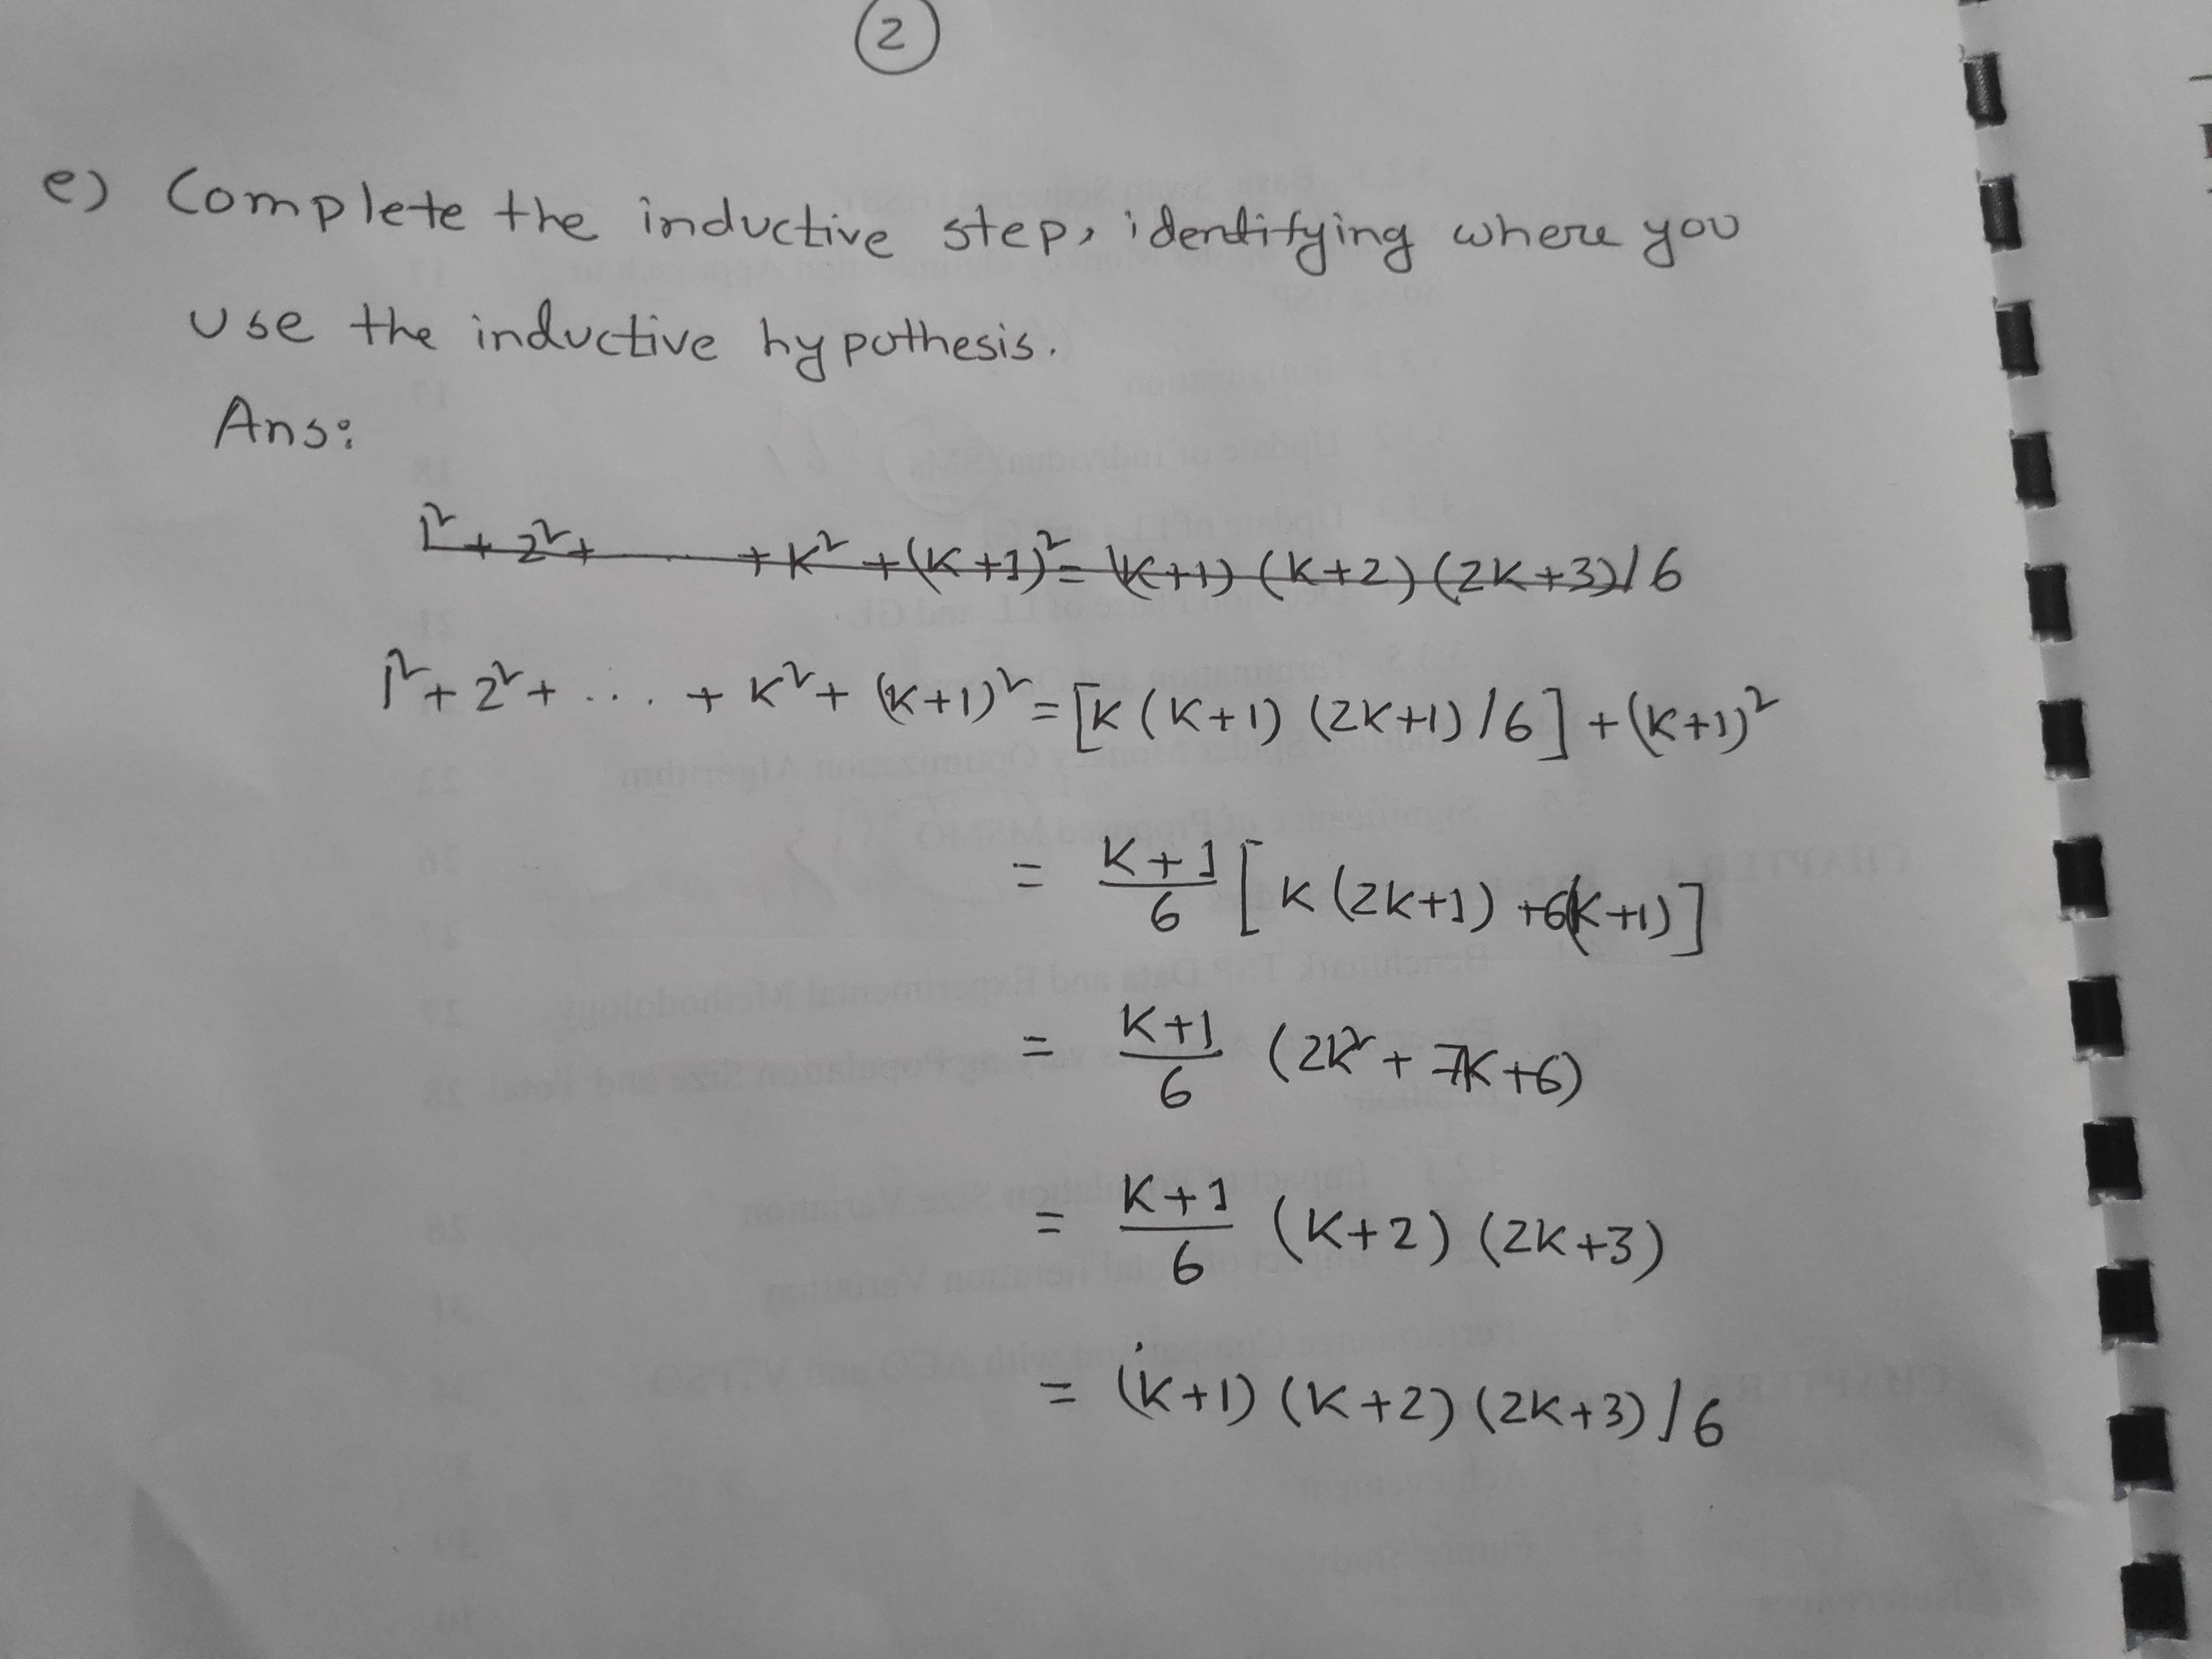 2
e) Complete the inductive step, identifying where you
use the inductive hypothesis.
Ans:
1² + 2² + ..... + K² + (K+1)² = (K+1) (K+2) (2K+3)/6
1² + 2² + .... + K² + (K+1)² = [K (K+1) (2K+1) /6] + (K+1)²
= K+1/6 [K (2K+1) +6(K+1)]
= K+1/6 (2K² + 7K+6)
= K+1/6 (K+2) (2K+3)
= (K+1) (K+2) (2K+3) /6